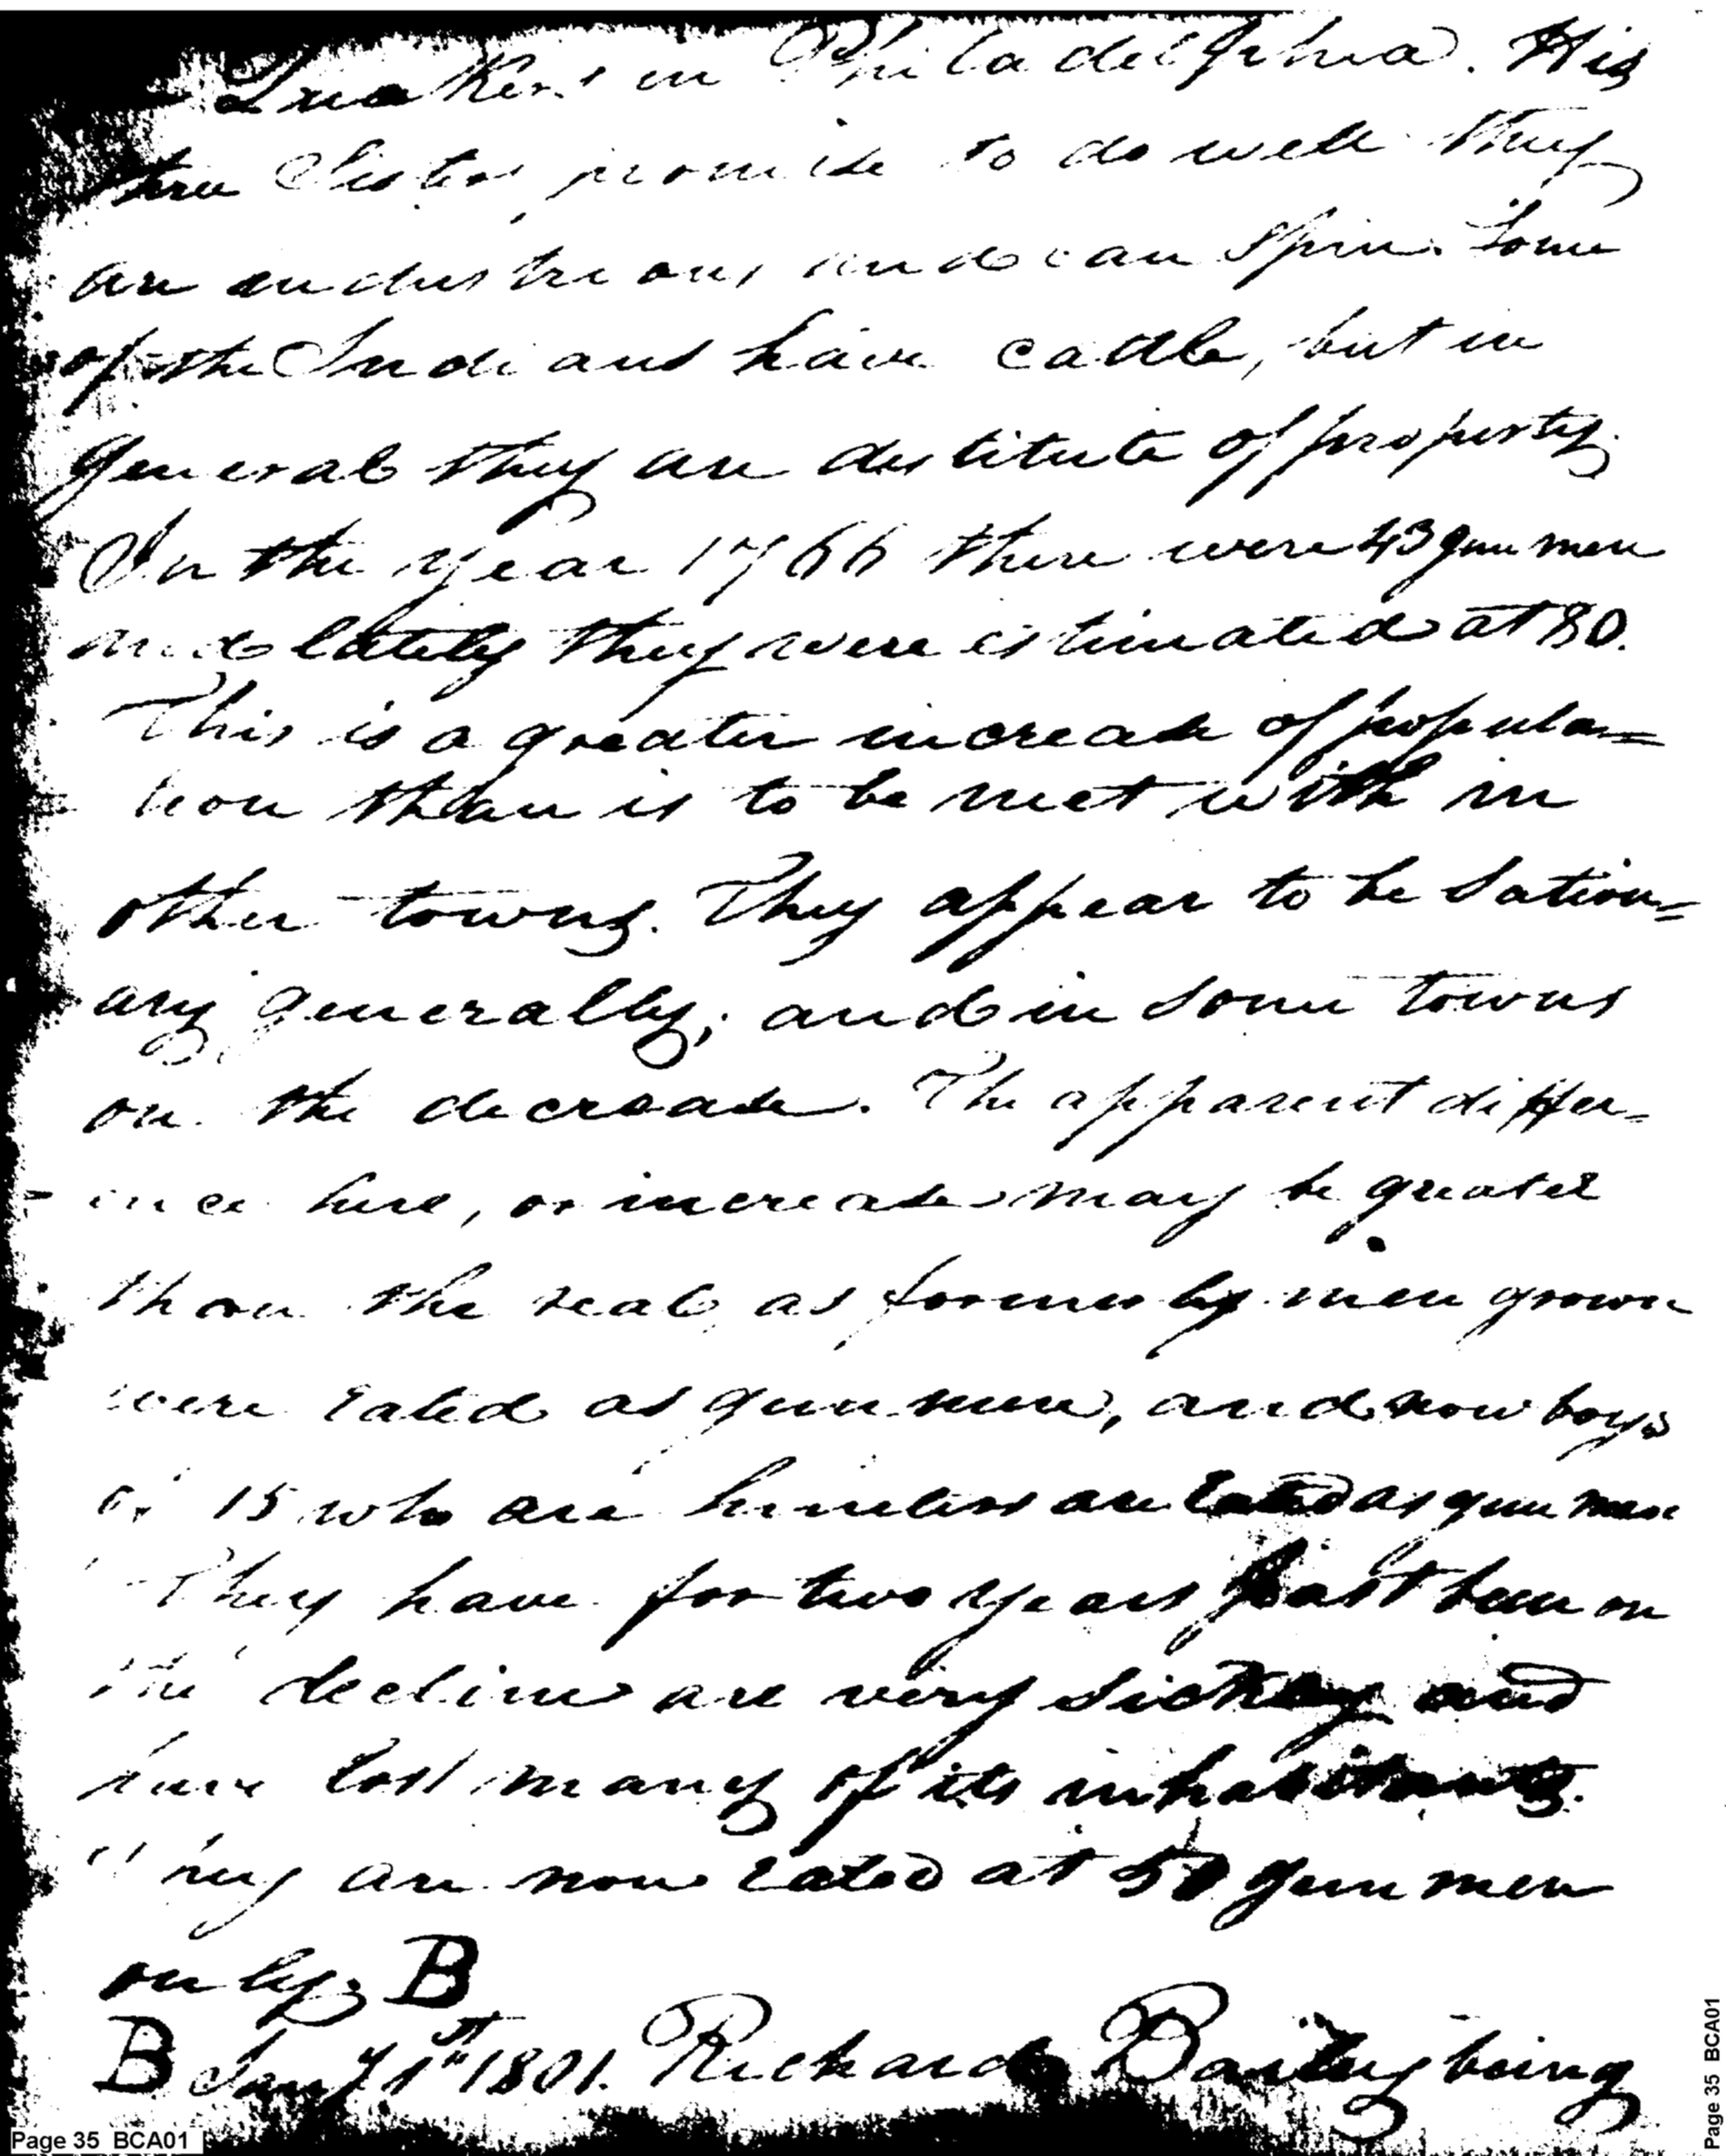 Quakers in Philadelphia. His
three Sisters promise to do well they
are industrious and can spin. Some
of the Indians have cattle, but in
general they are destitute of property.
In the year 1766 there were 43 gun men
and lately they were estimated at 80.
This is a greater increase of popula=
tion than is to be met with in
other towns. They appear to be Sation=
ary generally; and in some towns
on the decrease. The apparent differ=
ence here, or increase may be greater
than the real, as formerly men grown
were rated as gun men, and now boys
of 15 who are hunters are rated as gun men
They have for two years past been on
the decline are very Sickly and
have lost many of its inhabitants.
They are now rated at 50 gun men
only. B
B Jany 1st 1801. Richard Bailey being
Page 35 BCA01
Page 35 BCA01